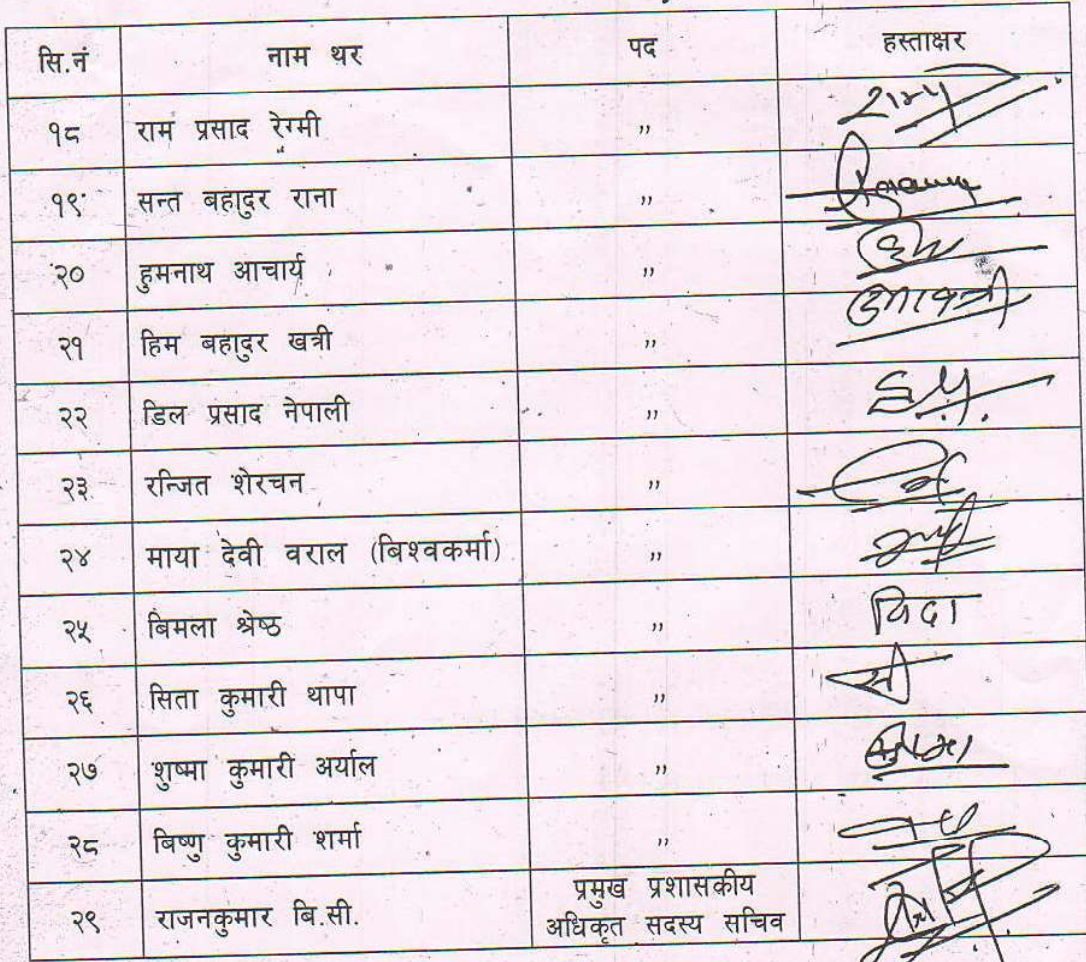 सि.नं नाम थर पद हस्ताक्षर
१८ राम प्रसाद रेग्मी ,,
१९ सन्त बहादुर राना ,,
२० हुमनाथ आचार्य ,,
२१ हिम बहादुर खत्री ,,
२२ डिल प्रसाद नेपाली ,,
२३ रन्जित शेरचन ,,
२४ माया देवी वराल (बिश्वकर्मा) ,,
२५ बिमला श्रेष्ठ ,,
२६ सिता कुमारी थापा ,,
२७ शुष्मा कुमारी अर्याल ,,
२८ बिष्णु कुमारी शर्मा ,,
२९ राजनकुमार बि.सी. प्रमुख प्रशासकीय
अधिकृत सदस्य सचिव